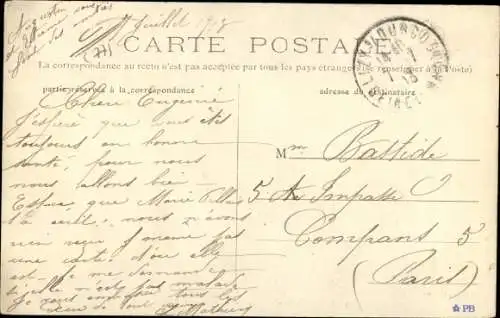 Juillet 1918
Augustin
771
CARTE POSTALE
La correspondance au recto n'est pas acceptée par tous les pays étrangers (se renseigner à la Poste)
partie réservée à la correspondance
adresse du destinataire
Chère Eugénie
J'espère que vous êtes
toujours en bonne
santé, pour nous
nous allons bien
Espère que Marie
a écrit, nous n'avons
rien reçu même pas
une carte d'où elle
est. je me demande
si elle n'est pas malade
Je vous embrasse tous les
de tout
Mathieu
Mme Bastide
5 Impasse
Compans 5
(Paris)
PB